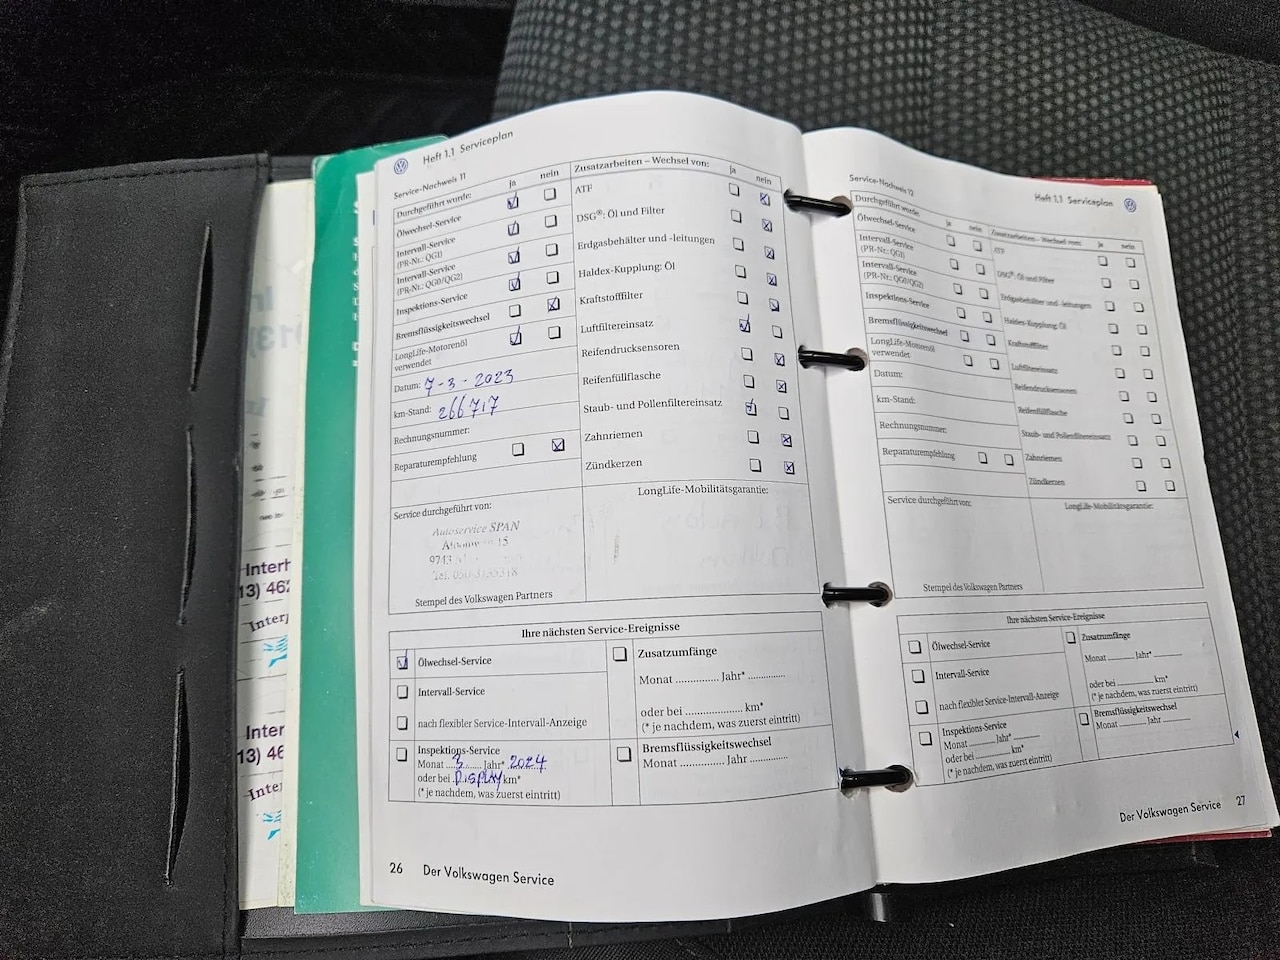 Heft 1.1 Serviceplan
Service-Nachweis 11
Durchgeführt wurde: ja nein
Ölwechsel-Service
Intervall-Service
(PR-Nr.: QG1)
Intervall-Service
(PR-Nr.: QG0/QG2)
Inspektions-Service
Bremsflüssigkeitswechsel
LongLife-Motorenöl
verwendet
Datum: 7-3-2023
km-Stand: 266717
Rechnungsnummer:
Reparaturempfehlung
Zusatzarbeiten – Wechsel von: ja nein
ATF
DSG®: Öl und Filter
Erdgasbehälter und -leitungen
Haldex-Kupplung: Öl
Kraftstofffilter
Luftfiltereinsatz
Reifendrucksensoren
Reifenfüllflasche
Staub- und Pollenfiltereinsatz
Zahnriemen
Zündkerzen
Service durchgeführt von:
Autoservice SPAN
15
Stempel des Volkswagen Partners
LongLife-Mobilitätsgarantie:
Ihre nächsten Service-Ereignisse
Ölwechsel-Service
Intervall-Service
nach flexibler Service-Intervall-Anzeige
Inspektions-Service
Monat 3 Jahr* 2024
oder bei Display km*
(* je nachdem, was zuerst eintritt)
Zusatzumfänge
Monat ............... Jahr* ...............
oder bei .................... km*
(* je nachdem, was zuerst eintritt)
Bremsflüssigkeitswechsel
Monat ............... Jahr ...............
26 Der Volkswagen Service
Service-Nachweis 12
Heft 1.1 Serviceplan
Durchgeführt wurde: ja nein
Ölwechsel-Service
Intervall-Service
(PR-Nr.: QG1)
Intervall-Service
(PR-Nr.: QG0/QG2)
Inspektions-Service
Bremsflüssigkeitswechsel
LongLife-Motorenöl
verwendet
Datum:
km-Stand:
Rechnungsnummer:
Reparaturempfehlung
Zusatzarbeiten – Wechsel von: ja nein
ATF
DSG®: Öl und Filter
Erdgasbehälter und -leitungen
Haldex-Kupplung: Öl
Kraftstofffilter
Luftfiltereinsatz
Reifendrucksensoren
Reifenfüllflasche
Staub- und Pollenfiltereinsatz
Zahnriemen
Zündkerzen
Service durchgeführt von:
Stempel des Volkswagen Partners
LongLife-Mobilitätsgarantie:
Ihre nächsten Service-Ereignisse
Ölwechsel-Service
Intervall-Service
nach flexibler Service-Intervall-Anzeige
Inspektions-Service
Monat .......... Jahr* ..........
oder bei ............... km*
(* je nachdem, was zuerst eintritt)
Zusatzumfänge
Monat .......... Jahr* ..........
oder bei ............... km*
(* je nachdem, was zuerst eintritt)
Bremsflüssigkeitswechsel
Monat .......... Jahr ..........
Der Volkswagen Service 27